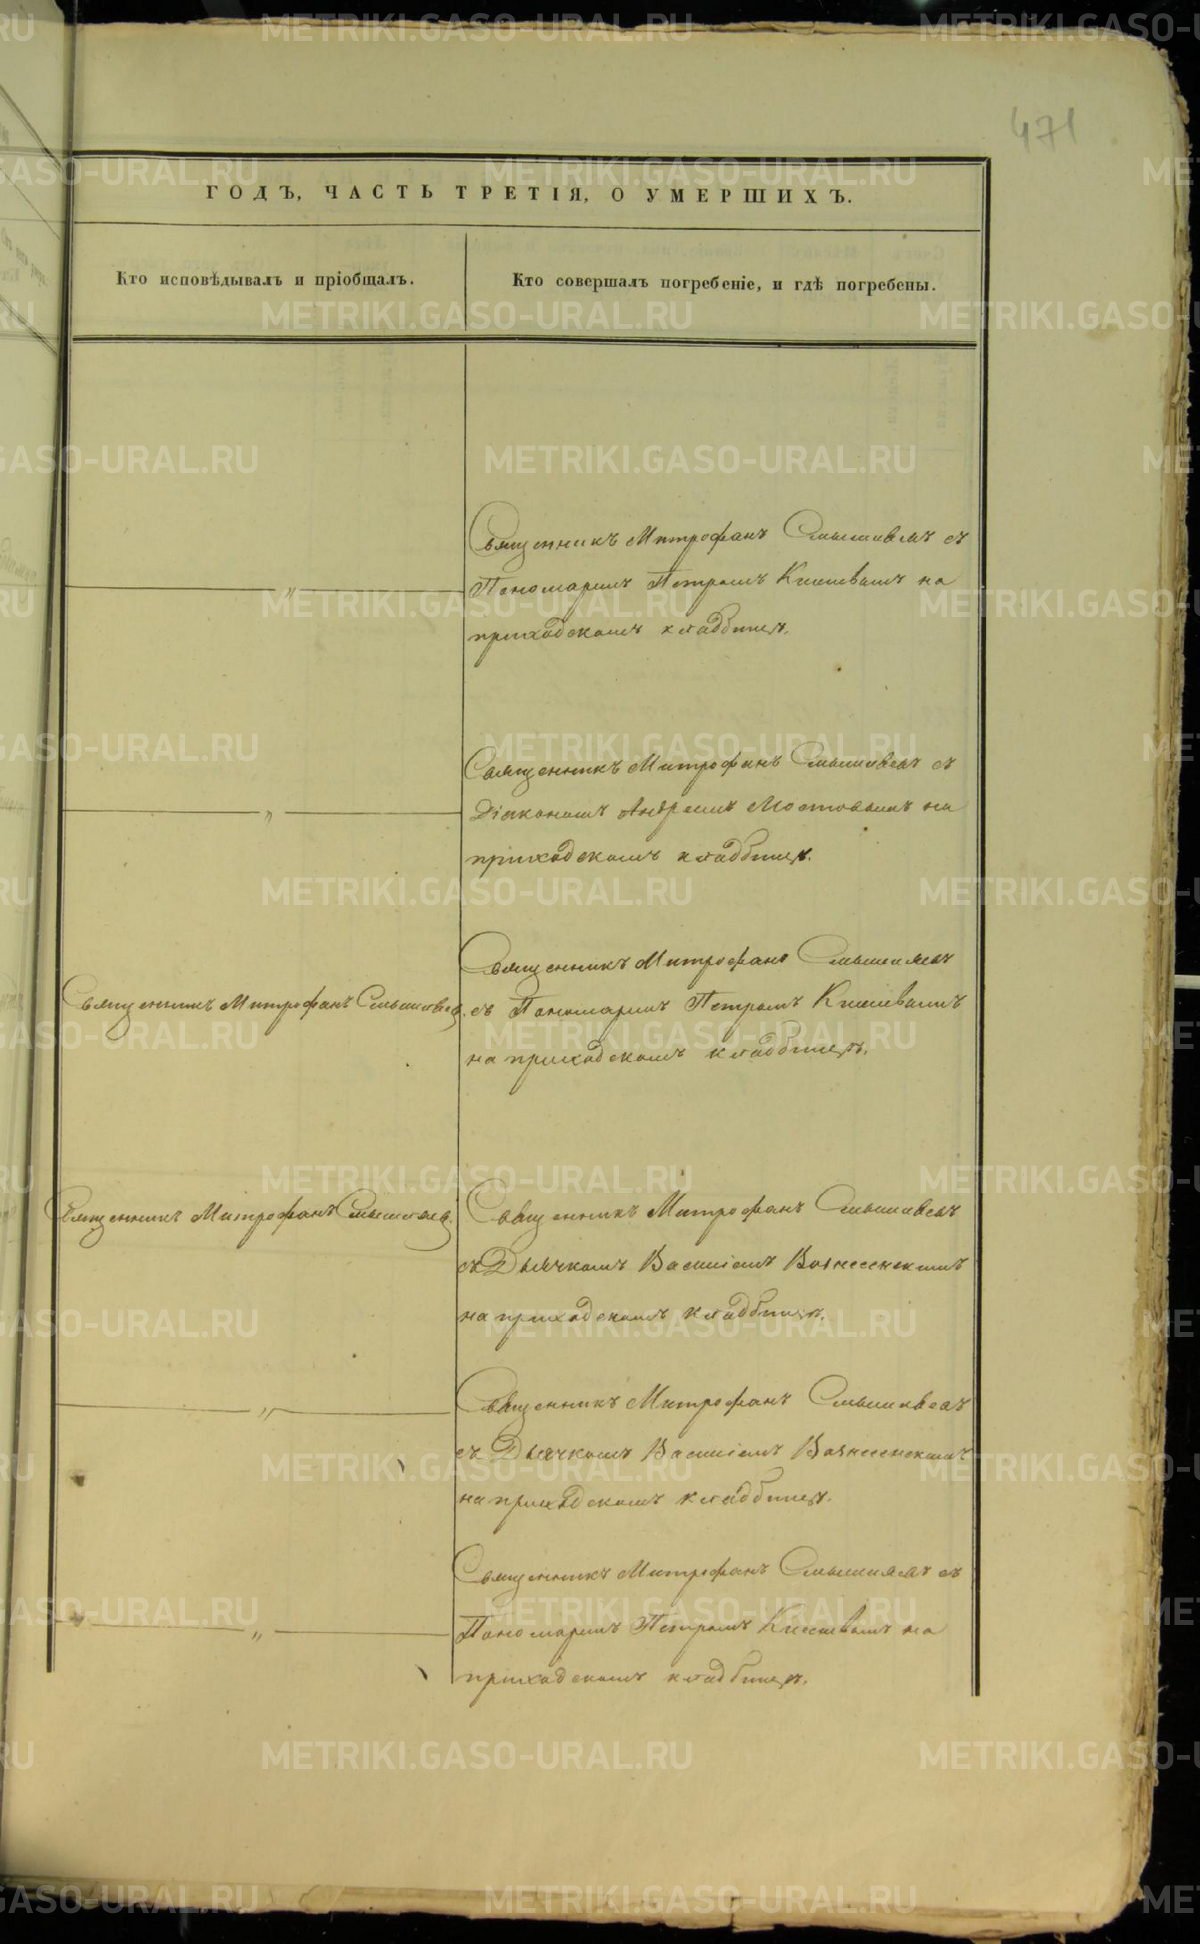 471
ГОДЪ, ЧАСТЬ ТРЕТІЯ, О УМЕРШИХЪ.
Кто исповѣдывалъ и пріобщалъ.
Кто совершалъ погребеніе, и гдѣ погребены.
Священникъ Митрофанъ съ
Пономаремъ Петромъ на
приходскомъ кладбищѣ.
Священникъ Митрофанъ съ
Діакономъ Андреемъ Мостовымъ на
приходскомъ кладбищѣ.
Священникъ Митрофанъ
Священникъ Митрофанъ
съ Пономаремъ Петромъ
на приходскомъ кладбищѣ.
Священникъ Митрофанъ
Священникъ Митрофанъ
съ Дьячкомъ Василіемъ Вознесенскимъ
на приходскомъ кладбищѣ.
Священникъ Митрофанъ
съ Дьячкомъ Василіемъ Вознесенскимъ
на приходскомъ кладбищѣ.
Священникъ Митрофанъ съ
Пономаремъ Петромъ на
приходскомъ кладбищѣ.
METRIKI.GASO-URAL.RU